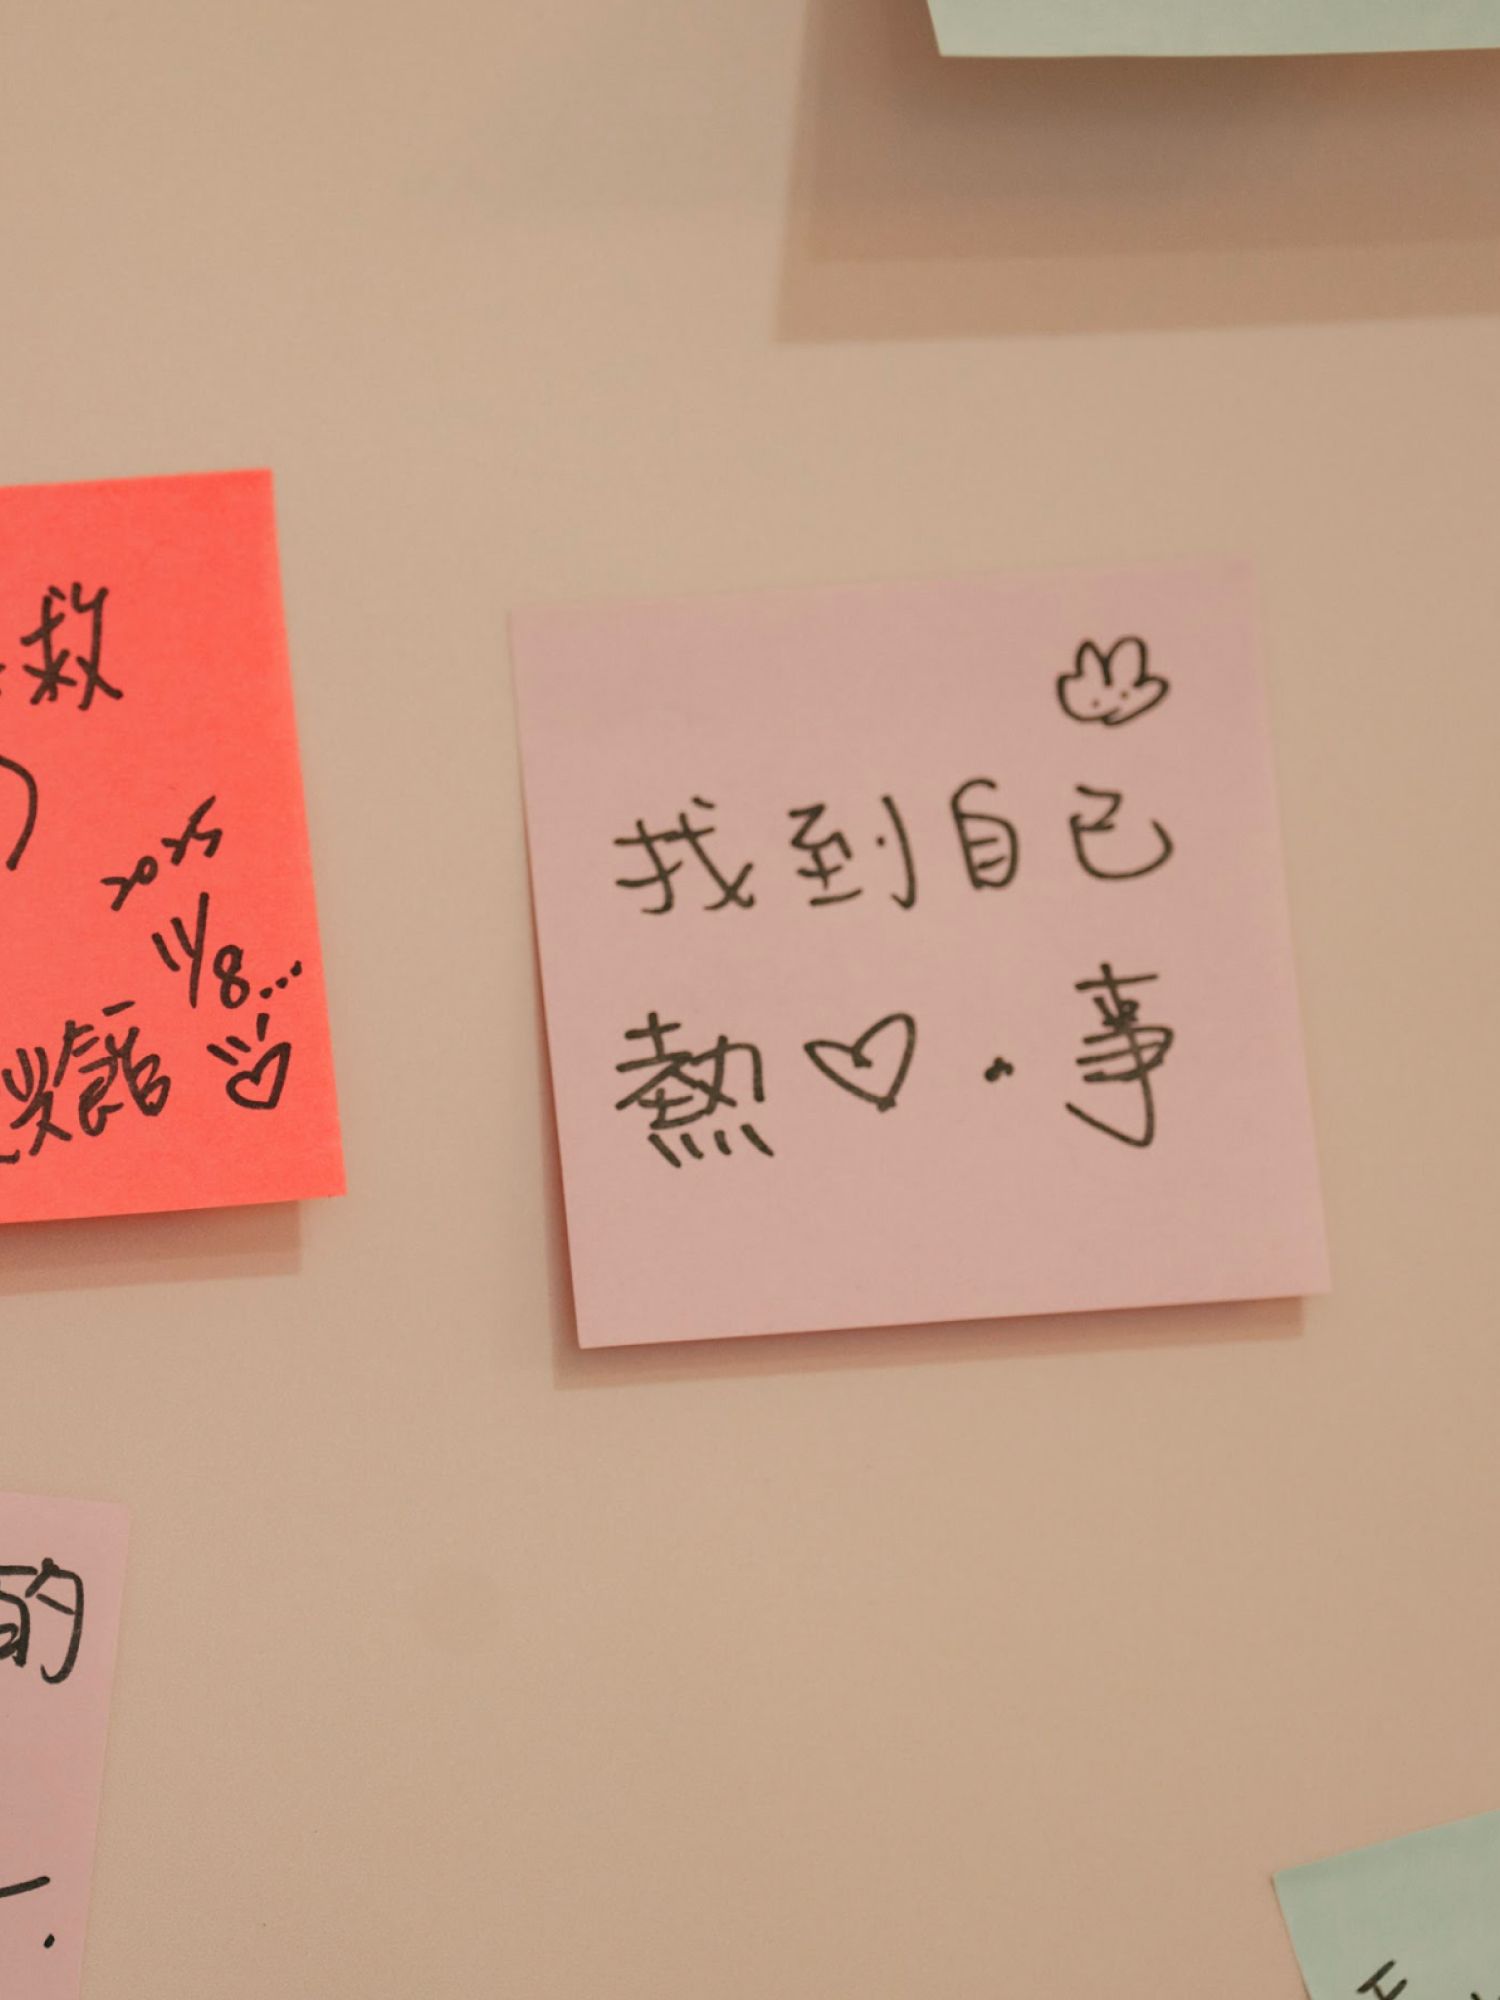 救
2025
11/8...
館
找到自己
熱♡・事
的